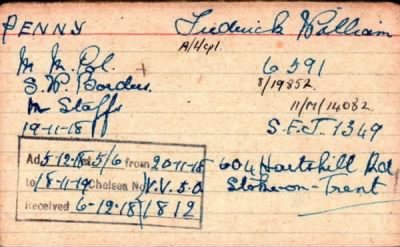 PENNY Frederick William
A/Cpl.
M.M.Pol. 6591
S.W. Borders. 8/19852.
N Staffs 11/M/14082.
19-11-18 S.F.J. 1349
Ad 5-12-18 at 5/6 from 20-11-18
to 18-11-19 Chelsea No V.V.50
Received 6-12-18 1812
604 Hartshill Rd
Stoke-on-Trent